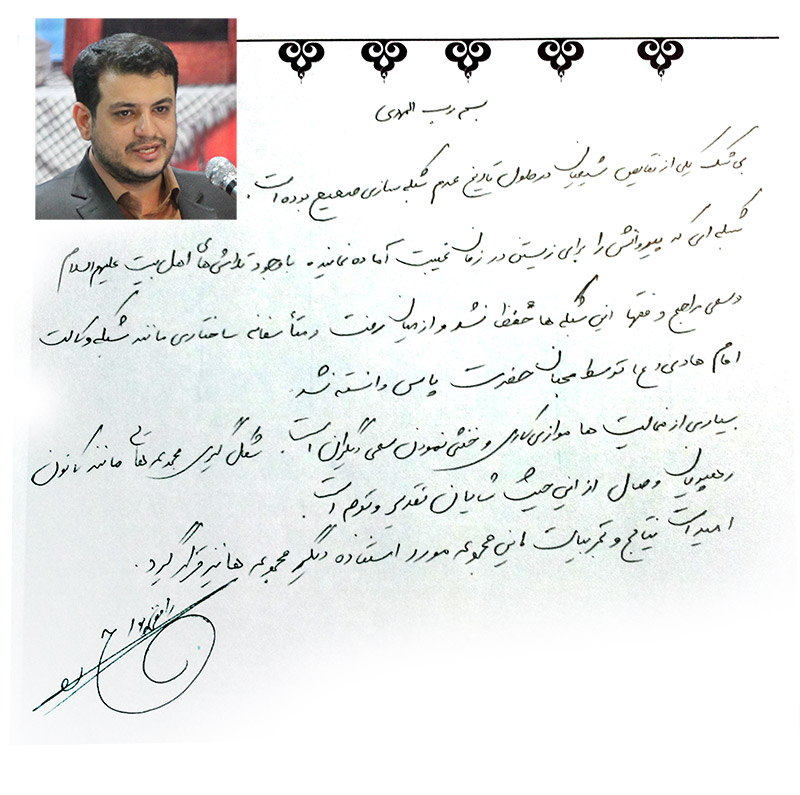 بسم رب المهدی
بی شک یکی از نقایص شیعیان در طول تاریخ عدم شبکه سازی صحیح بوده است.
شبکه ای که پیروانش را برای زیستن در زمان غیبت آماده نماید. با وجود تلاش های اهل بیت علیهم السلام
و سعی مراجع و فقها این شبکه ها حفظ نشد و از میان رفت و متأسفانه ساختاری مانند شبکه وکالت
امام هادی (ع) توسط محبان حضرت پاس داشته نشد.
بسیاری از فعالیت ها موازی کاری و خنثی نمودن سعی دیگران است. شکل گیری مجموعه هایی مانند کانون
رهپویان وصال از این حیث شایان تقدیر و توجه است.
امید است نتایج و تجربیات این مجموعه مورد استفاده دیگر مجموعه ها نیز قرار گیرد.
رائفی پور